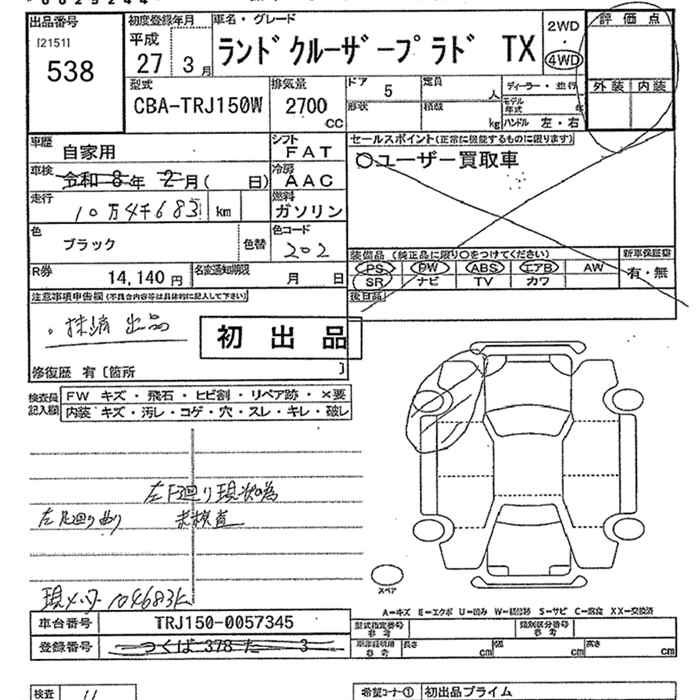 出品番号
[2151]
538
初度登録年月
平成
27 3月
車名・グレード
ランドクルーザープラド TX
2WD
・
4WD
評価点
外装 内装
型式
CBA-TRJ150W
排気量
2700
CC
ドア 5
定員 人
形状
積載 kg
ディーラー・並行
モデル年式 年
ハンドル 左・右
車歴 自家用
シフト FAT
車検 令和8年2月( 日)
冷房 AAC
走行 10万4千683 km
燃料 ガソリン
色 ブラック
色替
色コード 202
R券 14,140円
名変通知期限 月 日
セールスポイント(正常に機能するものに限ります)
○ユーザー買取車
装備品 (純正品に限り○をつけてください)
新車保証書
PS PW ABS エアB AW
SR ナビ TV カワ
有・無
後日品
注意事項申告欄(不具合内容等は具体的に記入して下さい)
。抹消出品
初出品
修復歴 有〔箇所 〕
検査員記入欄
FW キズ・飛石・ヒビ割・リペア跡・×要
内装 キズ・汚レ・コゲ・穴・スレ・キレ・破レ
左下廻り現状の為
左足廻り曲り 未検査
現メーター104683k
スペア
A=キズ E=エクボ U=凹み W=補修跡 S=サビ C=腐食 XX=交換済
車台番号 TRJ150-0057345
登録番号 つくば 378 た 3
型式指定番号 参考
類別区分番号 参考
車庫証明用 参考
長さ cm
幅 cm
高さ cm
検査
希望コーナー① 初出品プライム